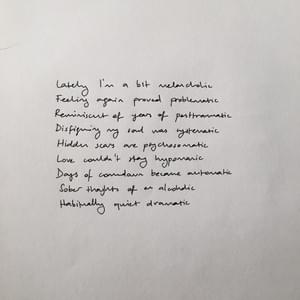 Lately I'm a bit melancholic
Feeling again proved problematic
Reminiscent of years of posttraumatic
Disfiguring my soul was systematic
Hidden scars are psychosomatic
Love couldn't stay hypomanic
Days of comedown became automatic
Sober thoughts of an alcoholic
Habitually quiet dramatic